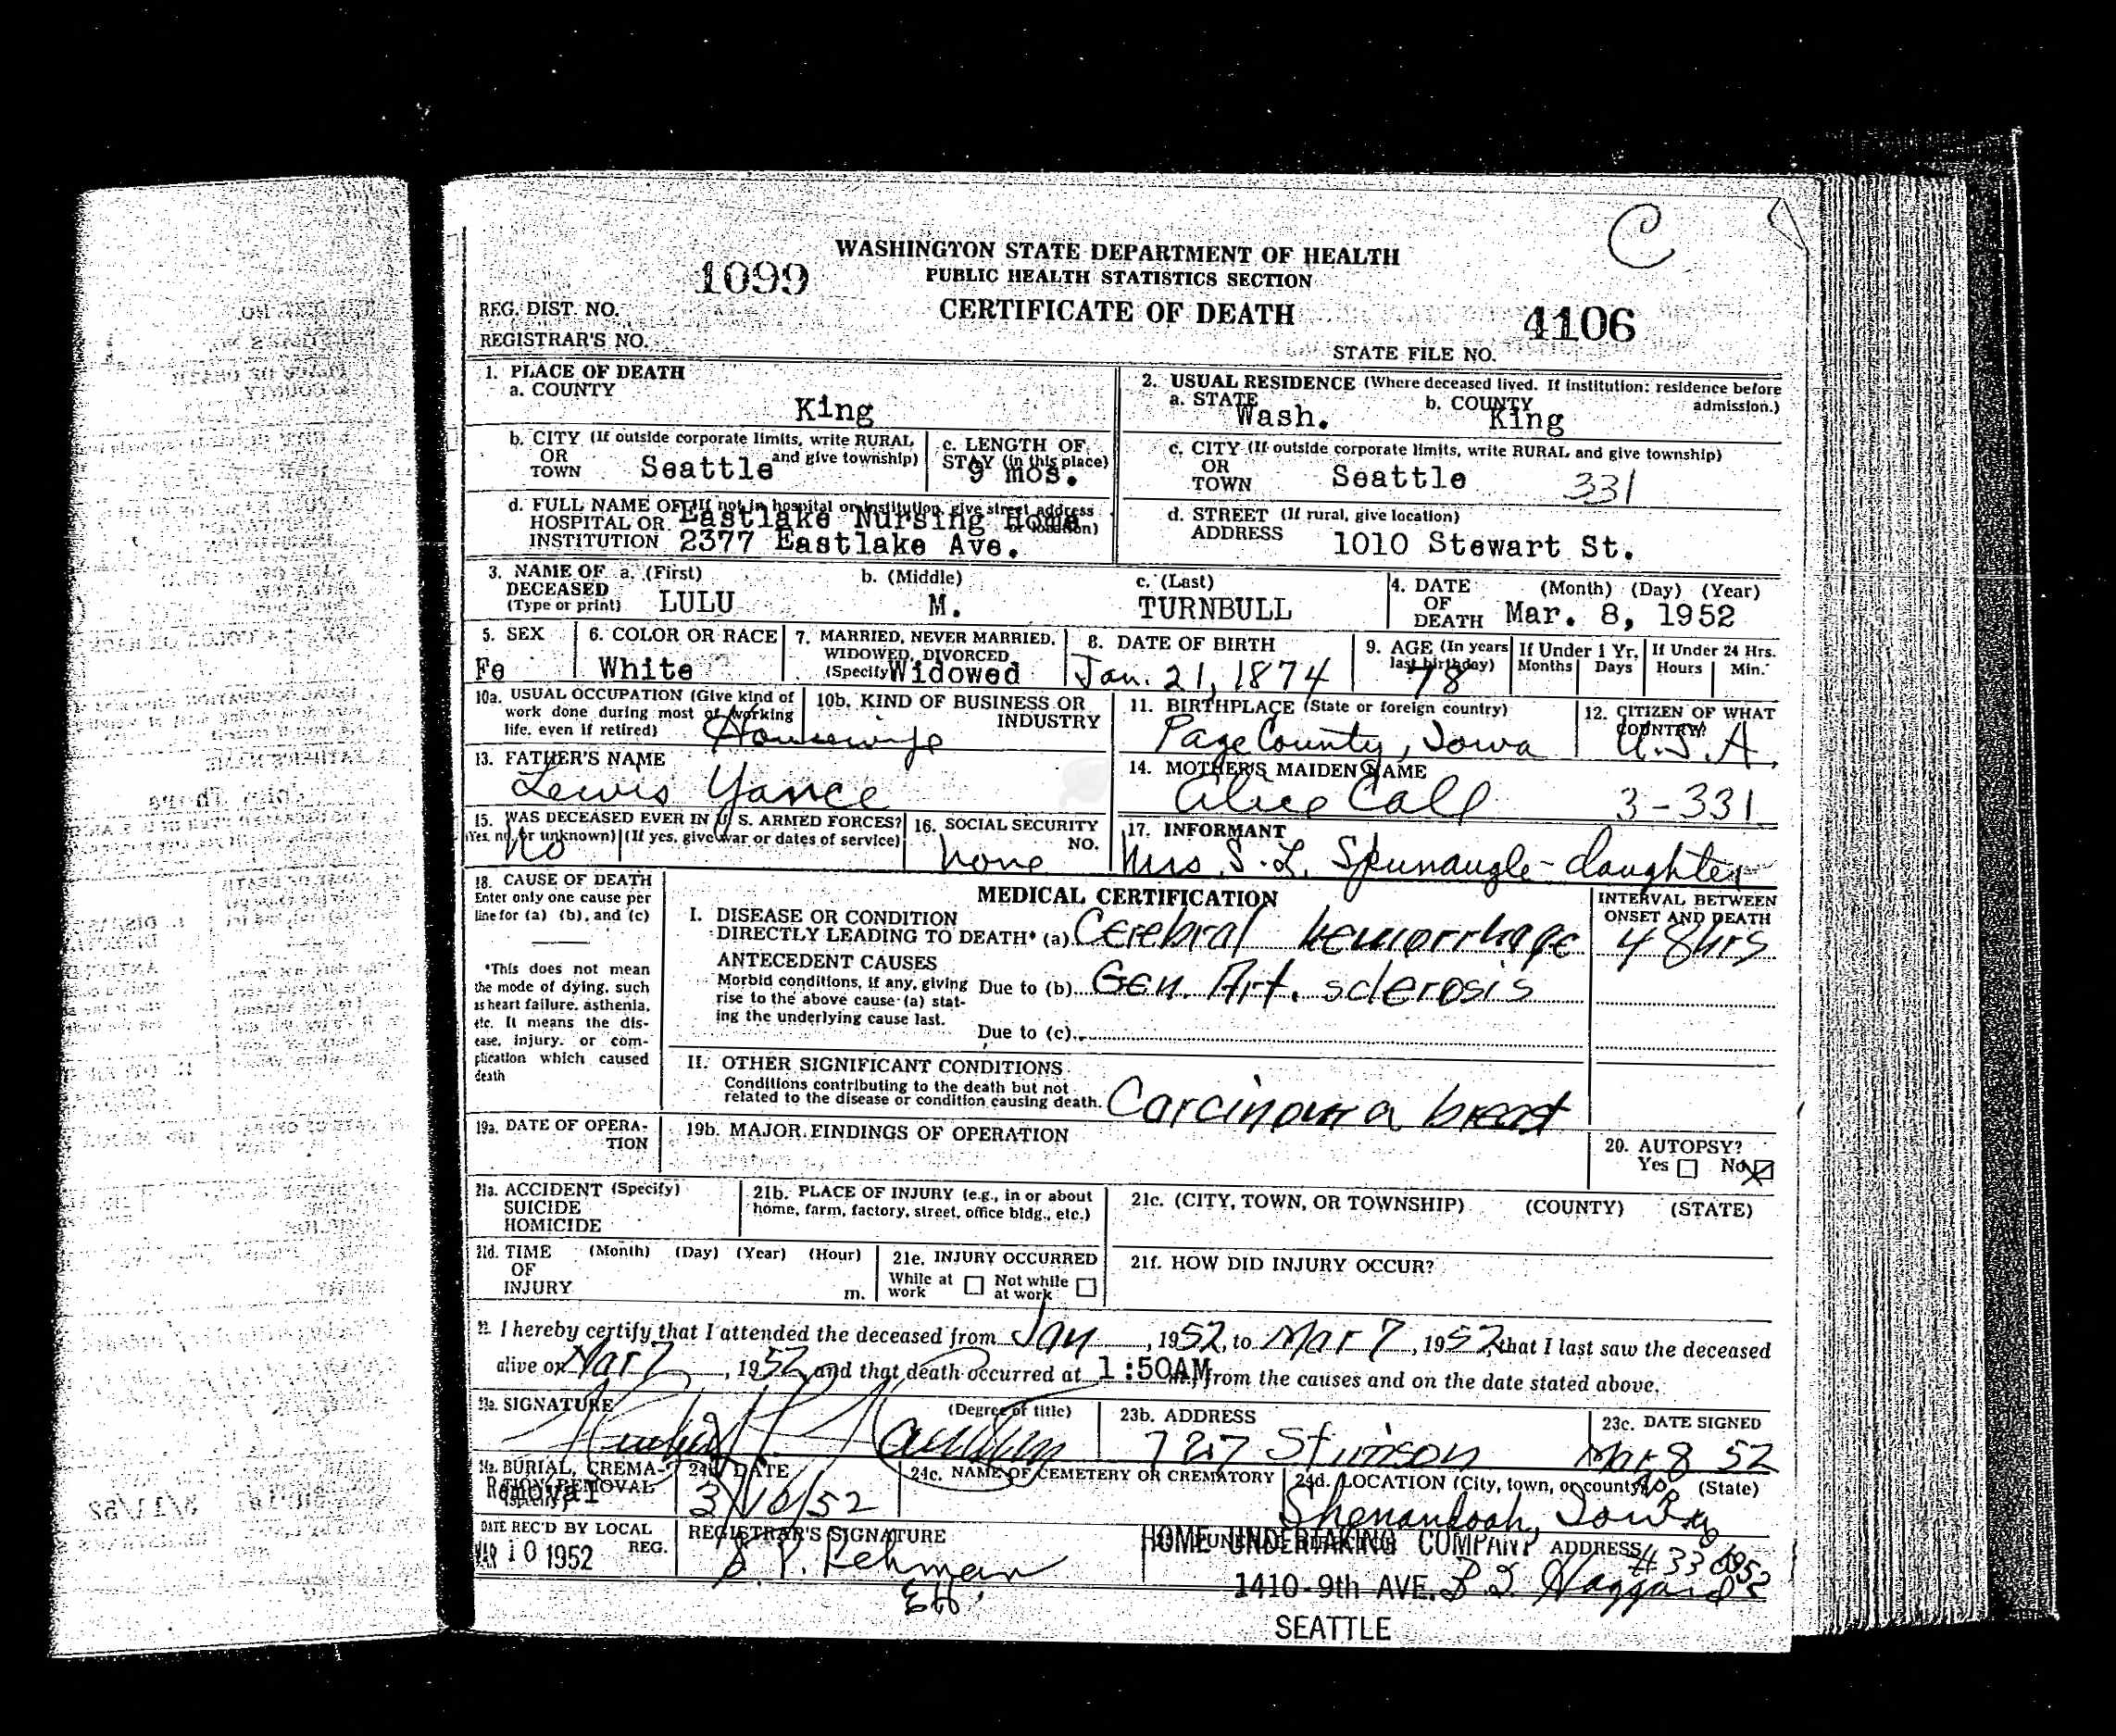 C
WASHINGTON STATE DEPARTMENT OF HEALTH
PUBLIC HEALTH STATISTICS SECTION
CERTIFICATE OF DEATH
1099
REG. DIST. NO.
REGISTRAR'S NO.
4106
STATE FILE NO.
1. PLACE OF DEATH
a. COUNTY
King
2. USUAL RESIDENCE (Where deceased lived. If institution: residence before admission.)
a. STATE Wash. b. COUNTY King
b. CITY (If outside corporate limits, write RURAL and give township)
OR
TOWN Seattle
c. LENGTH OF STAY (in this place)
9 mos.
c. CITY (If outside corporate limits, write RURAL and give township)
OR
TOWN Seattle 331
d. FULL NAME OF (If not in hospital or institution, give street address or location)
HOSPITAL OR Eastlake Nursing Home
INSTITUTION 2377 Eastlake Ave.
d. STREET (If rural, give location)
ADDRESS 1010 Stewart St.
3. NAME OF DECEASED (Type or print)
a. (First) LULU
b. (Middle) M.
c. (Last) TURNBULL
4. DATE OF DEATH (Month) (Day) (Year)
Mar. 8, 1952
5. SEX
Fe
6. COLOR OR RACE
White
7. MARRIED, NEVER MARRIED, WIDOWED, DIVORCED (Specify)
Widowed
8. DATE OF BIRTH
Jan. 21, 1874
9. AGE (In years last birthday)
78
If Under 1 Yr. Months Days
If Under 24 Hrs. Hours Min.
10a. USUAL OCCUPATION (Give kind of work done during most of working life, even if retired)
Housewife
10b. KIND OF BUSINESS OR INDUSTRY
11. BIRTHPLACE (State or foreign country)
Page County, Iowa
12. CITIZEN OF WHAT COUNTRY?
U.S.A.
13. FATHER'S NAME
Lewis Yance
14. MOTHER'S MAIDEN NAME
Alice Call 3-331
15. WAS DECEASED EVER IN U. S. ARMED FORCES?
(Yes, no, or unknown) (If yes, give war or dates of service)
No
16. SOCIAL SECURITY NO.
None
17. INFORMANT
Mrs. S. L. Spunaugle - daughter
18. CAUSE OF DEATH
Enter only one cause per line for (a) (b), and (c)
*This does not mean the mode of dying, such as heart failure, asthenia, etc. It means the disease, injury, or complication which caused death
MEDICAL CERTIFICATION
INTERVAL BETWEEN ONSET AND DEATH
I. DISEASE OR CONDITION
DIRECTLY LEADING TO DEATH* (a) Cerebral hemorrhage 48hrs
ANTECEDENT CAUSES
Morbid conditions, if any, giving rise to the above cause (a) stating the underlying cause last.
Due to (b) Gen. Art. sclerosis
Due to (c)
II. OTHER SIGNIFICANT CONDITIONS
Conditions contributing to the death but not related to the disease or condition causing death.
Carcinoma breast
19a. DATE OF OPERATION
19b. MAJOR FINDINGS OF OPERATION
20. AUTOPSY?
Yes No X
21a. ACCIDENT (Specify)
SUICIDE
HOMICIDE
21b. PLACE OF INJURY (e.g., in or about home, farm, factory, street, office bldg., etc.)
21c. (CITY, TOWN, OR TOWNSHIP) (COUNTY) (STATE)
21d. TIME OF INJURY (Month) (Day) (Year) (Hour) m.
21e. INJURY OCCURRED
While at work Not while at work
21f. HOW DID INJURY OCCUR?
22. I hereby certify that I attended the deceased from Jan, 1952, to Mar 7, 1952, that I last saw the deceased
alive on Mar 7, 1952, and that death occurred at 1:50AM m., from the causes and on the date stated above.
23a. SIGNATURE (Degree or title)
23b. ADDRESS
727 Stimson
23c. DATE SIGNED
Mar 8 52
24a. BURIAL, CREMATION, REMOVAL (Specify)
Removal
24b. DATE
3/10/52
24c. NAME OF CEMETERY OR CREMATORY
24d. LOCATION (City, town, or county) (State)
Shenandoah, Iowa
DATE REC'D BY LOCAL REG.
MAR 10 1952
REGISTRAR'S SIGNATURE
S. P. Lehman
25. FUNERAL DIRECTOR ADDRESS
HOME UNDERTAKING COMPANY
1410-9th AVE.
SEATTLE